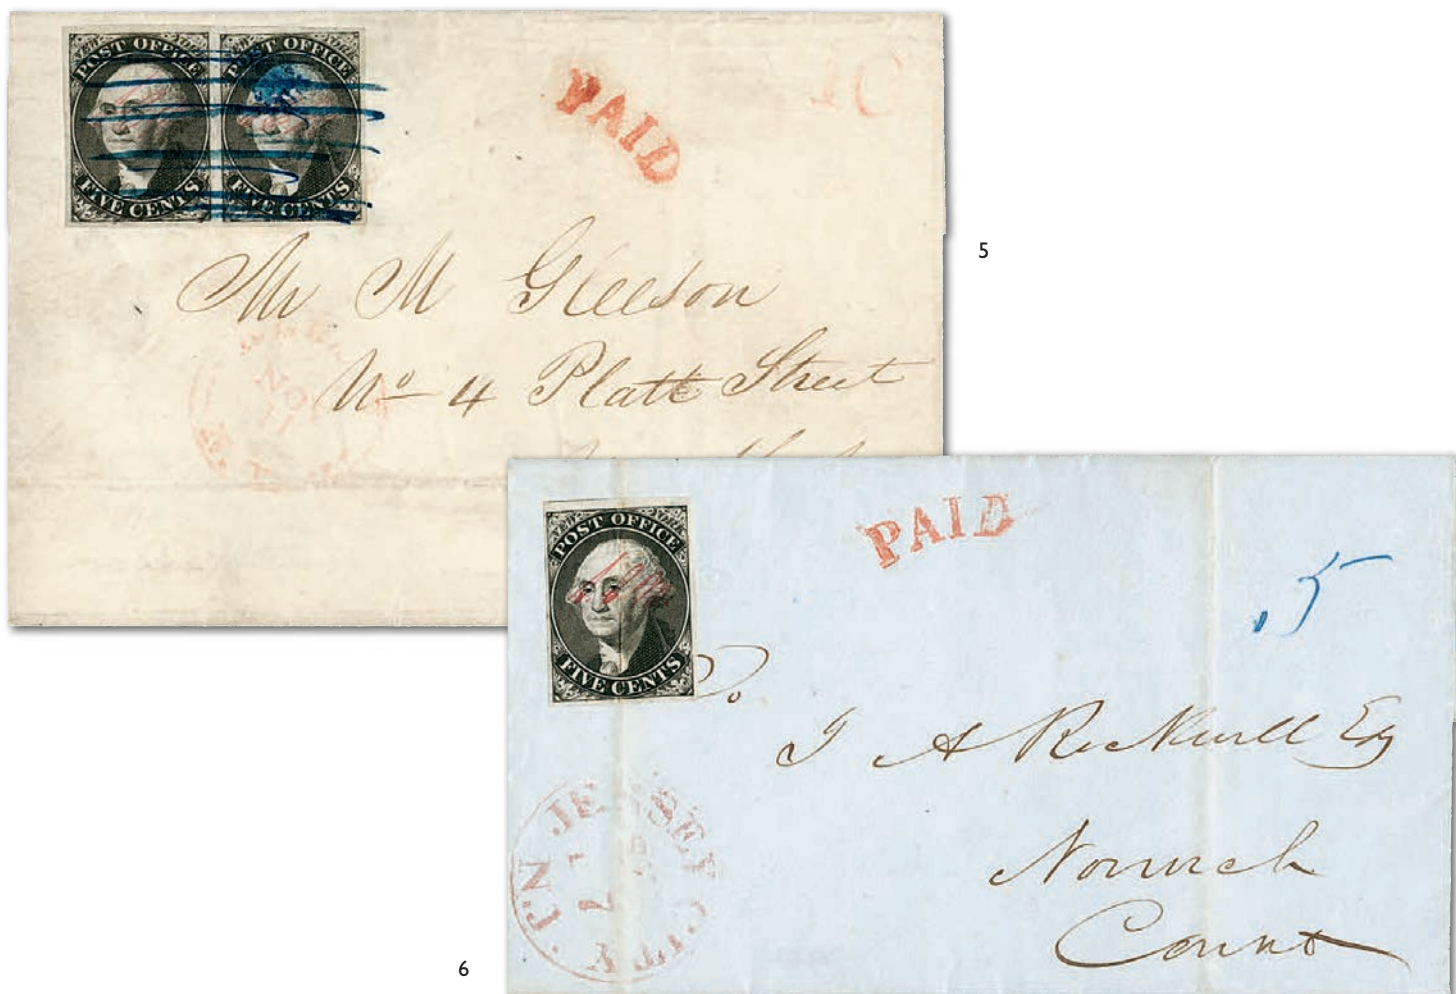 POST OFFICE
FIVE CENTS
POST OFFICE
FIVE CENTS
PAID
10
Mr M Gleeson
No 4 Platt Street
NOV
5
NEW YORK
POST OFFICE
FIVE CENTS
PAID
5
J A Rockwell Esq
Norwich
Connt
JERSEY CITY N.J.
6